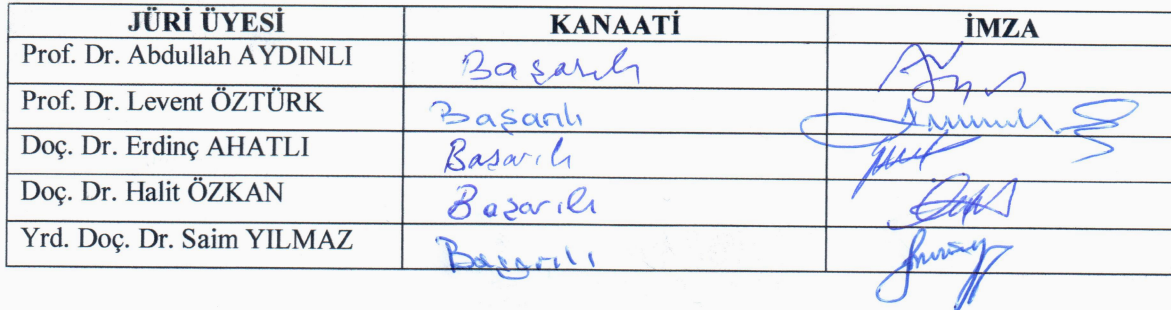 JÜRİ ÜYESİ KANAATİ İMZA
Prof. Dr. Abdullah AYDINLI Başarılı
Prof. Dr. Levent ÖZTÜRK Başarılı
Doç. Dr. Erdinç AHATLI Başarılı
Doç. Dr. Halit ÖZKAN Başarılı
Yrd. Doç. Dr. Saim YILMAZ Başarılı